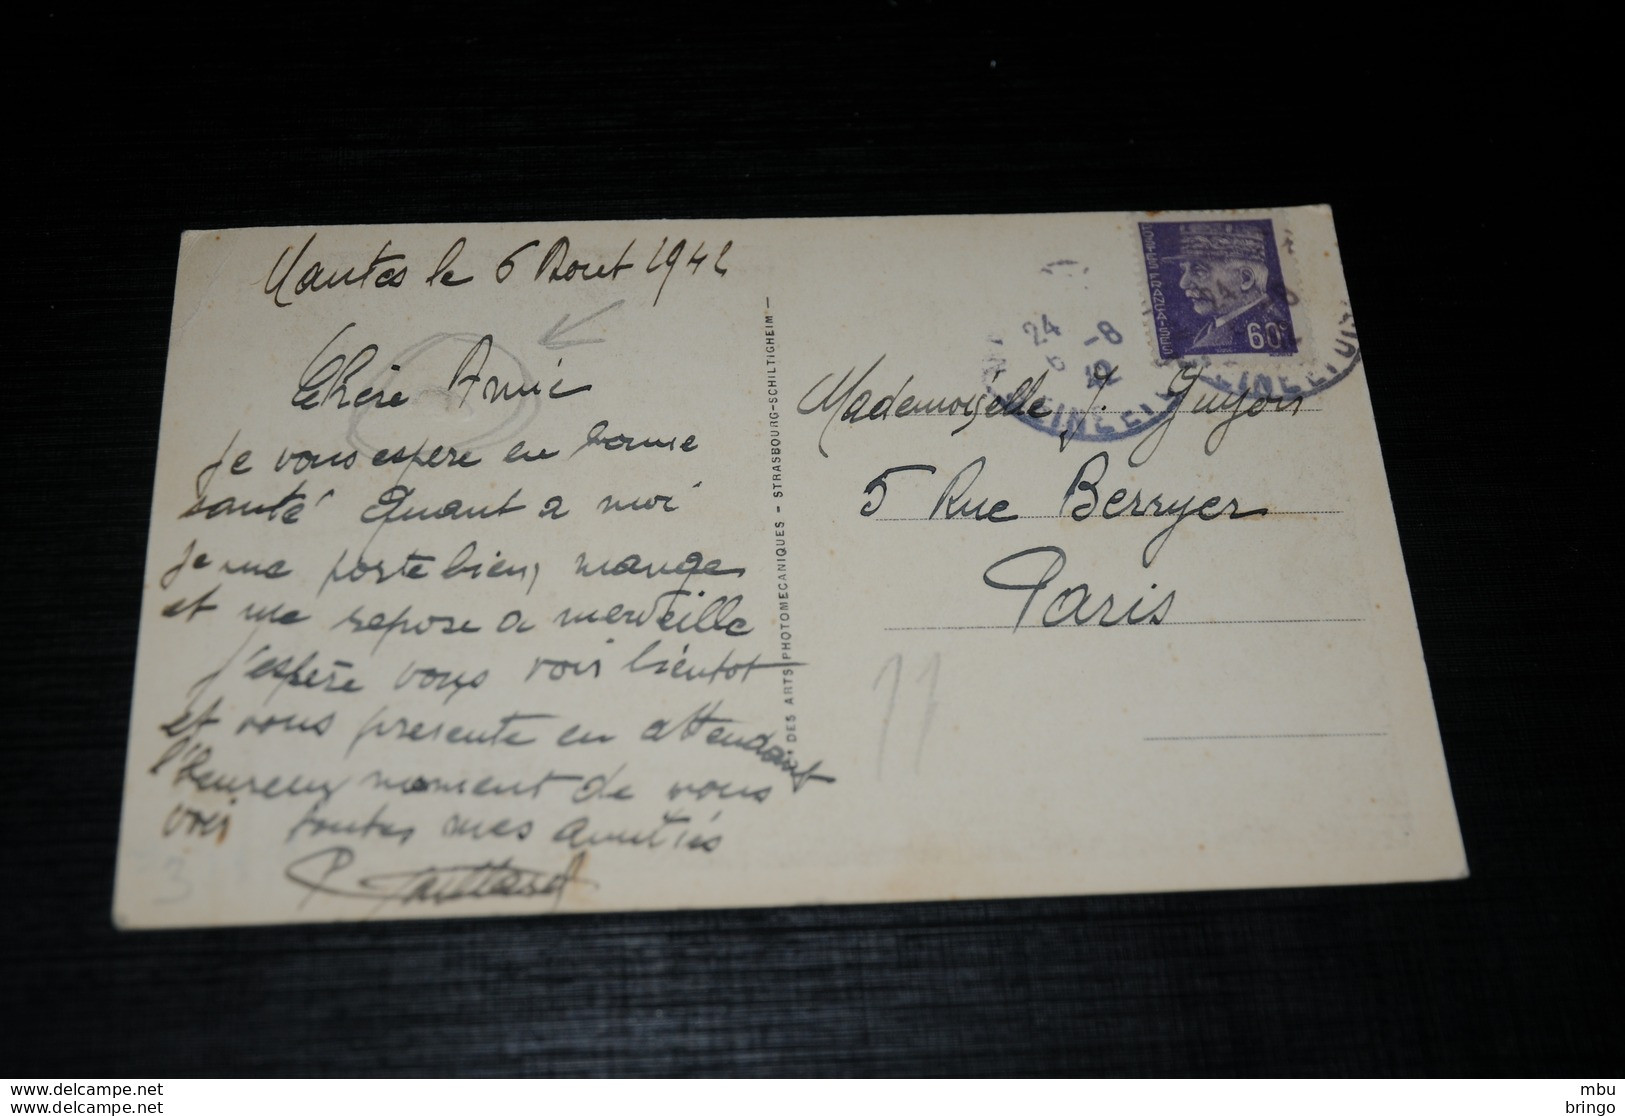 Nantes le 6 Aout 1942
Chère Amie
je vous espere en bonne
santé Quant a moi
je me porte bien, mange
et me repose a merveille
j'espère vous voir bientot
et vous presente en attendant
l'heureux moment de vous
voir toutes mes amitiés
Gaillard
3
DES ARTS PHOTOMECANIQUES - STRASBOURG-SCHILTIGHEIM -
POSTES FRANÇAISES
60
24
6 -8
42
Mademoiselle J. Guyon
5 Rue Berryer
Paris
11
www.delcampe.net
www.delcampe.net
mbu
bringo